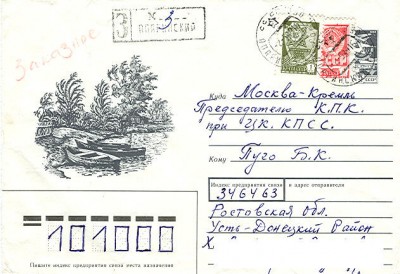 Заказное
З
СССР
Куда Москва-Кремль
Председателю К.П.К.
при ЦК. КПСС.
Кому Пуго Б.К.
Индекс предприятия связи и адрес отправителя
346463
Ростовская обл.
Усть-Донецкий Район
Х
101000
Пишите индекс предприятия связи места назначения